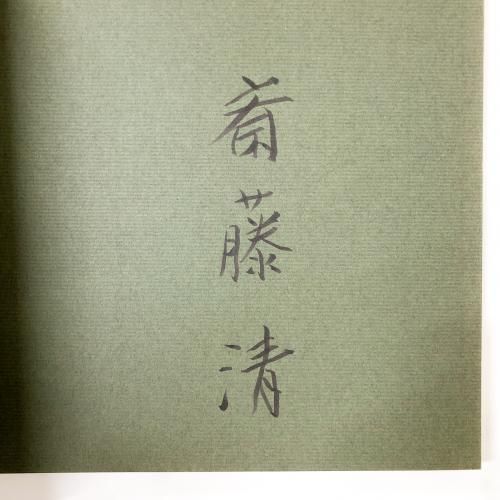 斎藤清